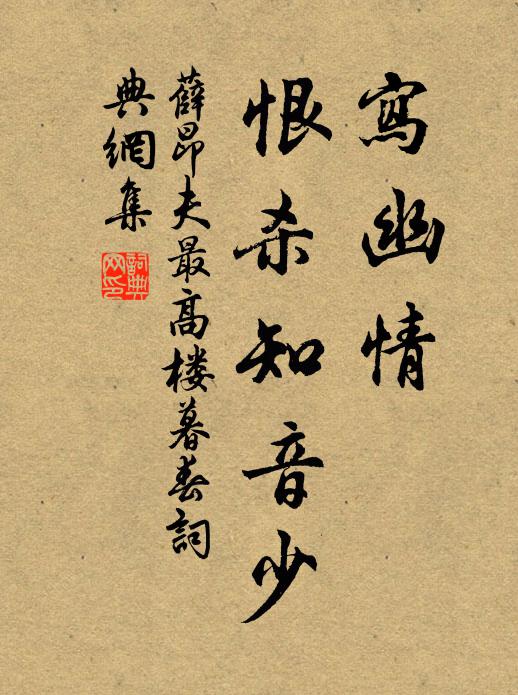 寫幽情
恨杀知音少
薛昂夫最高楼暮春詞
典網集
詞典網印